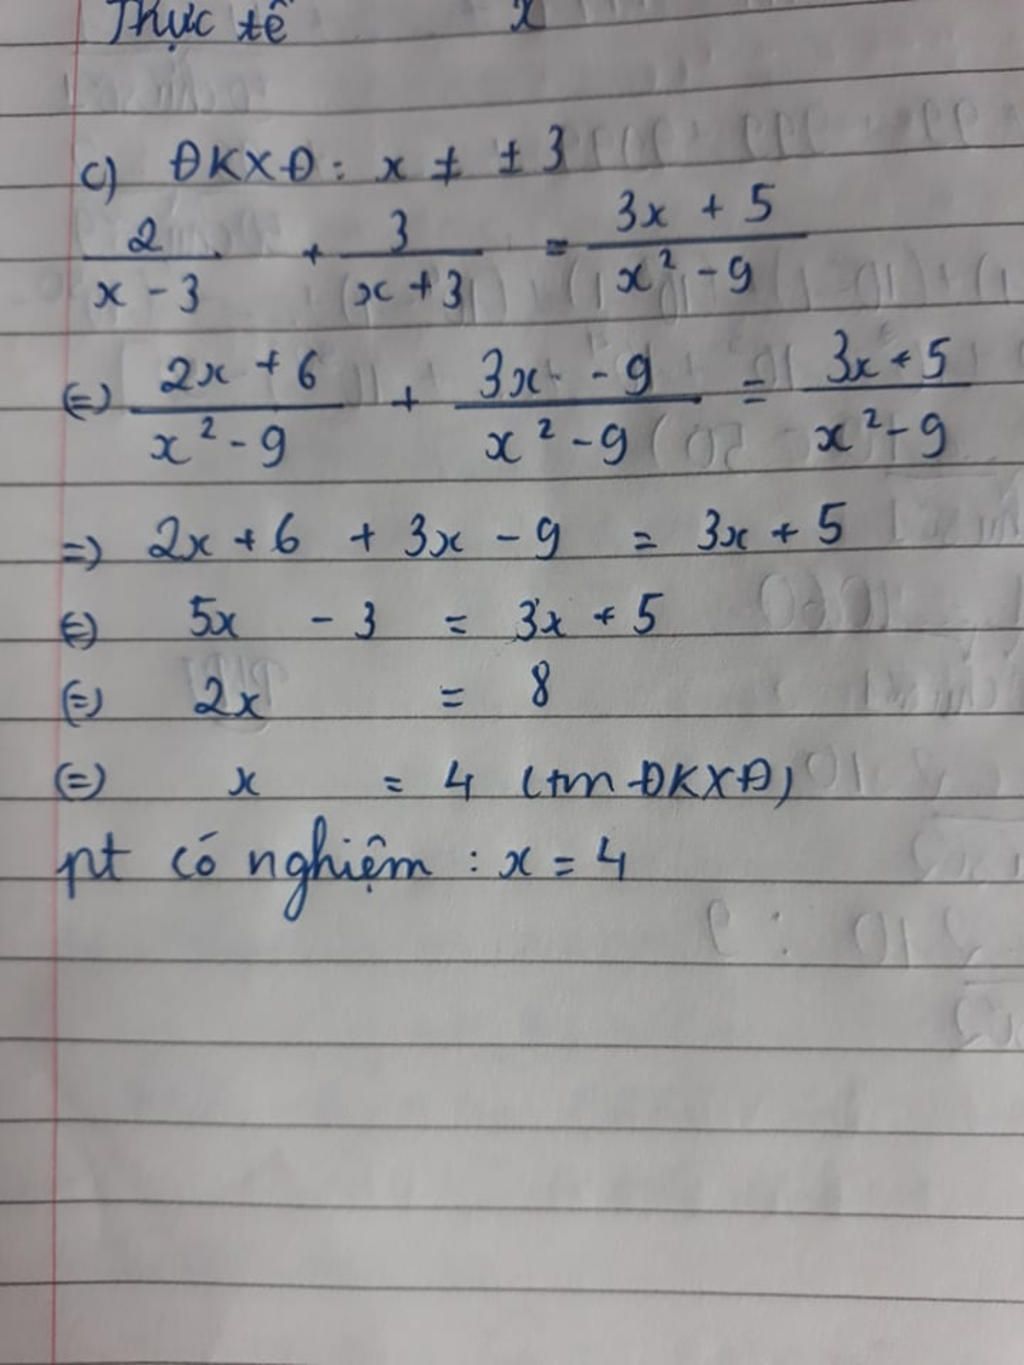 Thực tế x
c) ĐKXĐ: x ≠ ± 3
2/(x - 3) + 3/(x + 3) = (3x + 5)/(x² - 9)
(=) (2x + 6)/(x² - 9) + (3x - 9)/(x² - 9) = (3x + 5)/(x² - 9)
=) 2x + 6 + 3x - 9 = 3x + 5
(=) 5x - 3 = 3x + 5
(=) 2x = 8
(=) x = 4 (tm ĐKXĐ)
pt có nghiệm : x = 4